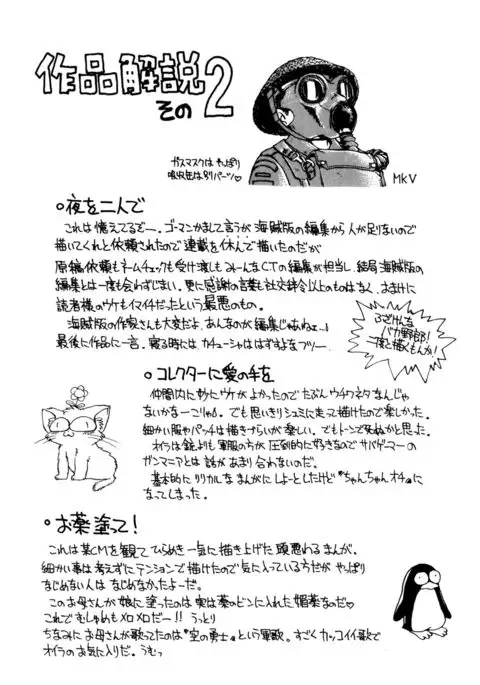 作品解説
その2
ガスマスクは やっぱり
吸収缶は別パーツ♡
MKV
○夜を二人で
これは憶えてるぞー。ゴーマンかまして言うが海賊版の編集から人が足りないので
描いてくれと依頼されたので連載を休んで描いたのだが
原稿依頼もネームチェックも受け渡しもみーんなCTの編集が担当し、結局海賊版の
編集とは一度も会わずじまい。更に感謝の言葉も社交辞令以上のものはなく、おまけに
読者様のウケもイマイチだったという最悪のもの。
海賊版の作家さんも大変だよ、あんなのが編集じゃねェ…!
最後に作品に一言。寝る時には カチューシャははずすよなフツー
ふざけんな
バカ野郎!
二度と描くもんか!
○コレクターに愛の手を
仲間内に妙にウケがよかったので たぶんウチワネタなんじゃ
ないかなーこりゃ。でも思いきりシュミに走って描けたので楽しかった。
細かい服やパッチは描きづらいが楽しい。でもトーンで死ぬかと思った。
オイラは銃よりも軍服の方が圧倒的に好きなのでサバゲーマーの
ガンマニアとは話があまり合わないのだ。
基本的にリリカルなまんがにしよーとしたけど〝ちゃんちゃんオチ〟に
なってしまった。
○お薬塗って!
これは某CMを観てひらめき一気に描き上げた頭悪いまんが。
細かい事は考えずにテンションで描けたので気に入っている方だが やっぱり
なじめない人は なじめなかったよーだ。
このお母さんが娘に塗ったのは 実は薬のビンに入れた媚薬なのだ♡
これでむしゅめもメロメロだー!! うっとり
ちなみにお母さんが歌ってたのは〝空の勇士〟という軍歌。すごくカッコイイ歌で
オイラのお気に入りだ。うむっ